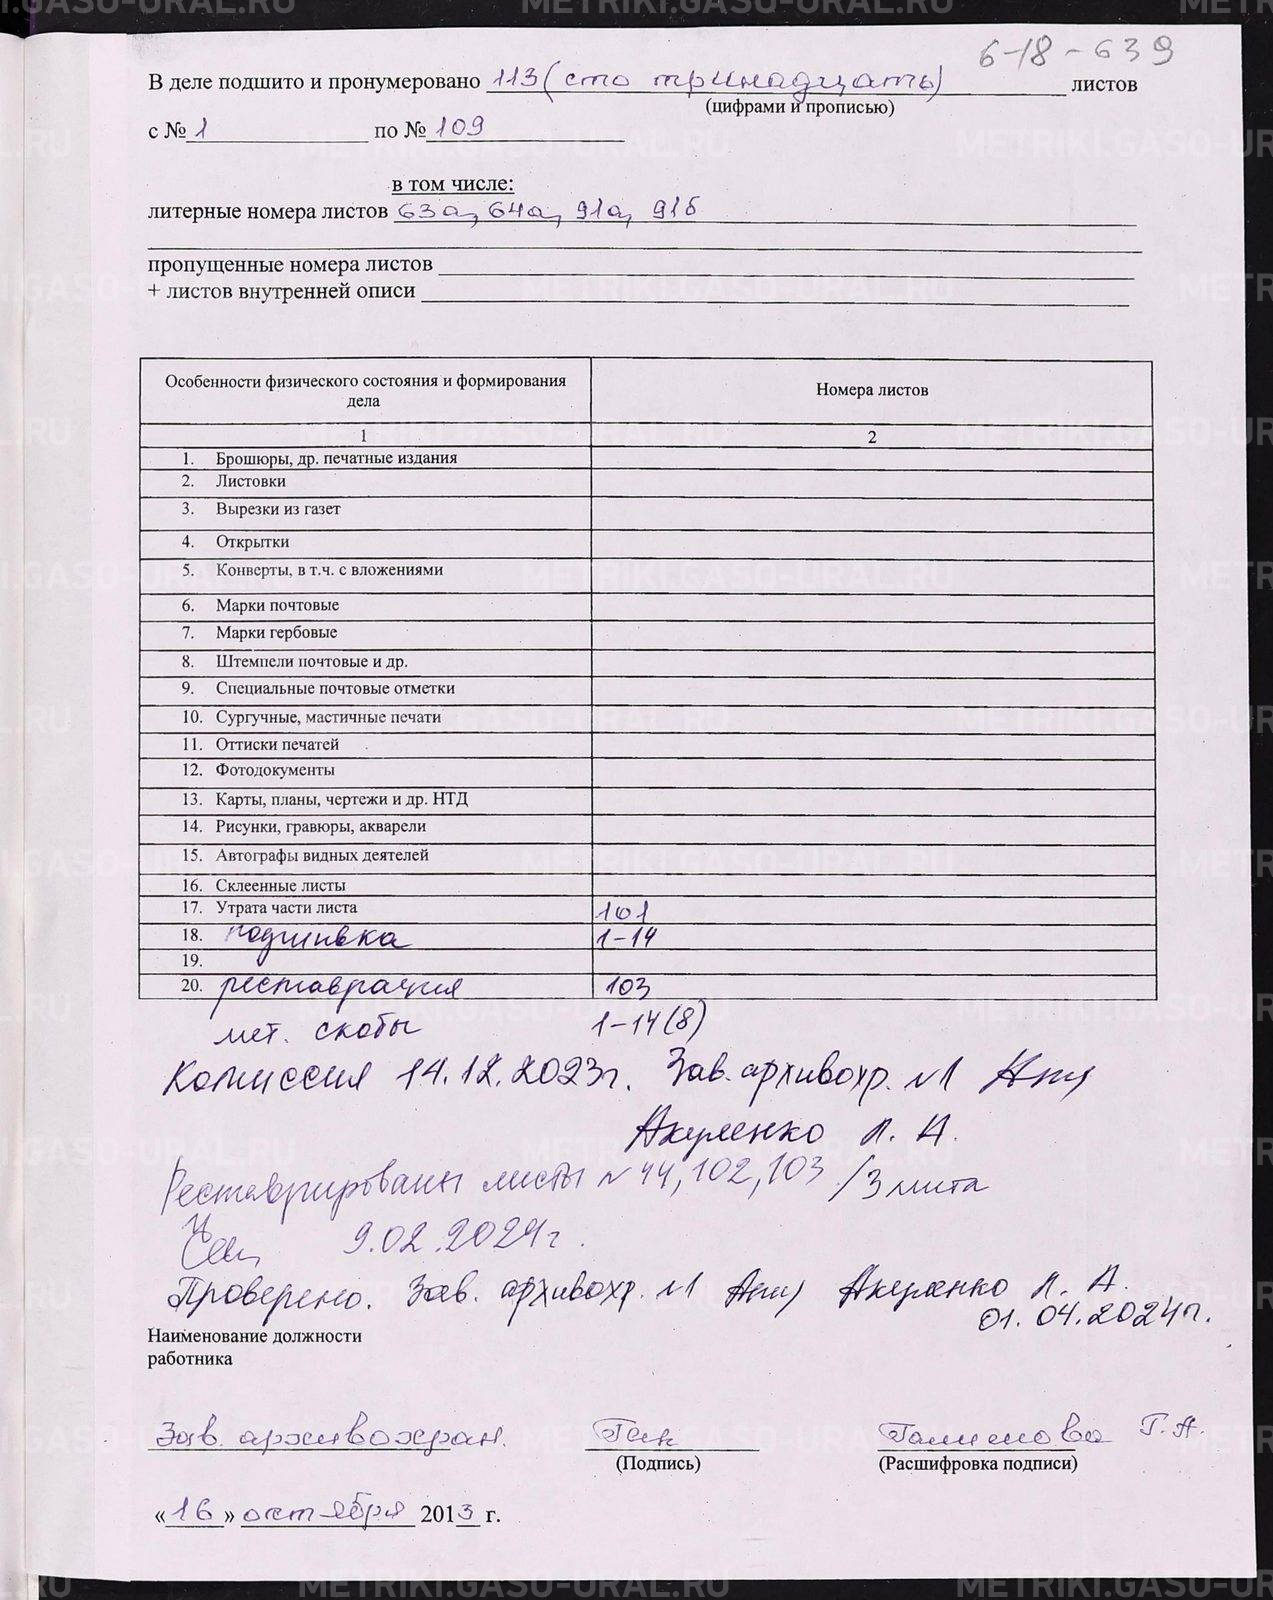 6-18-639
В деле подшито и пронумеровано 113 (сто тринадцать) листов
(цифрами и прописью)
с № 1 по № 109
в том числе:
литерные номера листов 63а, 64а, 91а, 91б
пропущенные номера листов
+ листов внутренней описи
Особенности физического состояния и формирования дела Номера листов
1 2
1. Брошюры, др. печатные издания
2. Листовки
3. Вырезки из газет
4. Открытки
5. Конверты, в т.ч. с вложениями
6. Марки почтовые
7. Марки гербовые
8. Штемпели почтовые и др.
9. Специальные почтовые отметки
10. Сургучные, мастичные печати
11. Оттиски печатей
12. Фотодокументы
13. Карты, планы, чертежи и др. НТД
14. Рисунки, гравюры, акварели
15. Автографы видных деятелей
16. Склеенные листы
17. Утрата части листа 101
18. подшивка 1-14
19.
20. реставрация 103
мет. скобы 1-14(8)
Комиссия 14.12.2023г. Зав. архивохр. №1
Акуленко Л. А.
Реставрированы листы №44, 102, 103 /3 листа
9.02.2024г.
Проверено. Зав. архивохр. №1 Акуленко Л. А.
01.04.2024г.
Наименование должности
работника
Зав. архивохран. Гал Галимова Г.А.
(Подпись) (Расшифровка подписи)
«16» октября 2013 г.
METRIKI.GASO-URAL.RU